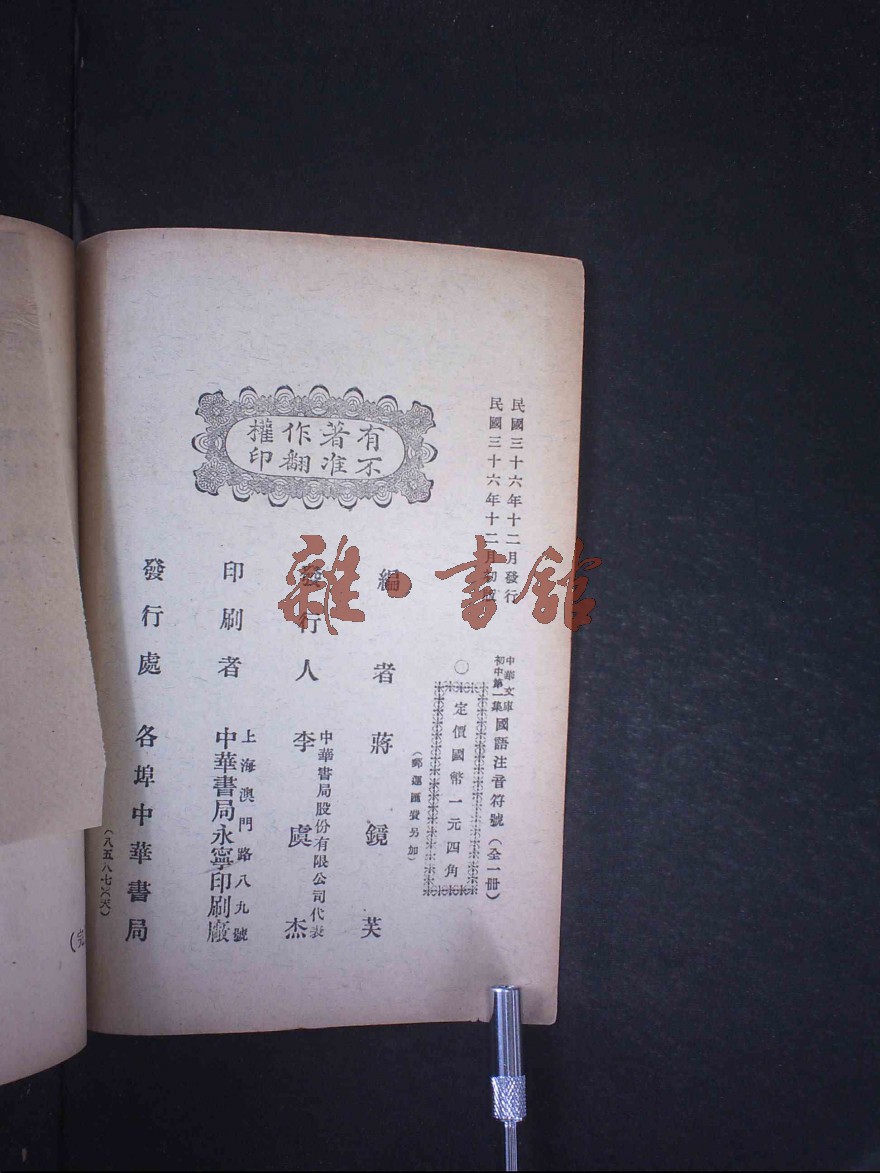 民國三十六年十二月發行
民國三十六年十二月初版
中華文庫
初中第一集
國語注音符號(全一冊)
〇定價國幣一元四角
(郵運匯費另加)
有著作權
不准翻印
編者 蔣鏡芙
發行人 李虞杰
中華書局股份有限公司代表
印刷者
上海澳門路八九號
中華書局永寧印刷廠
發行處 各埠中華書局
雜·書館